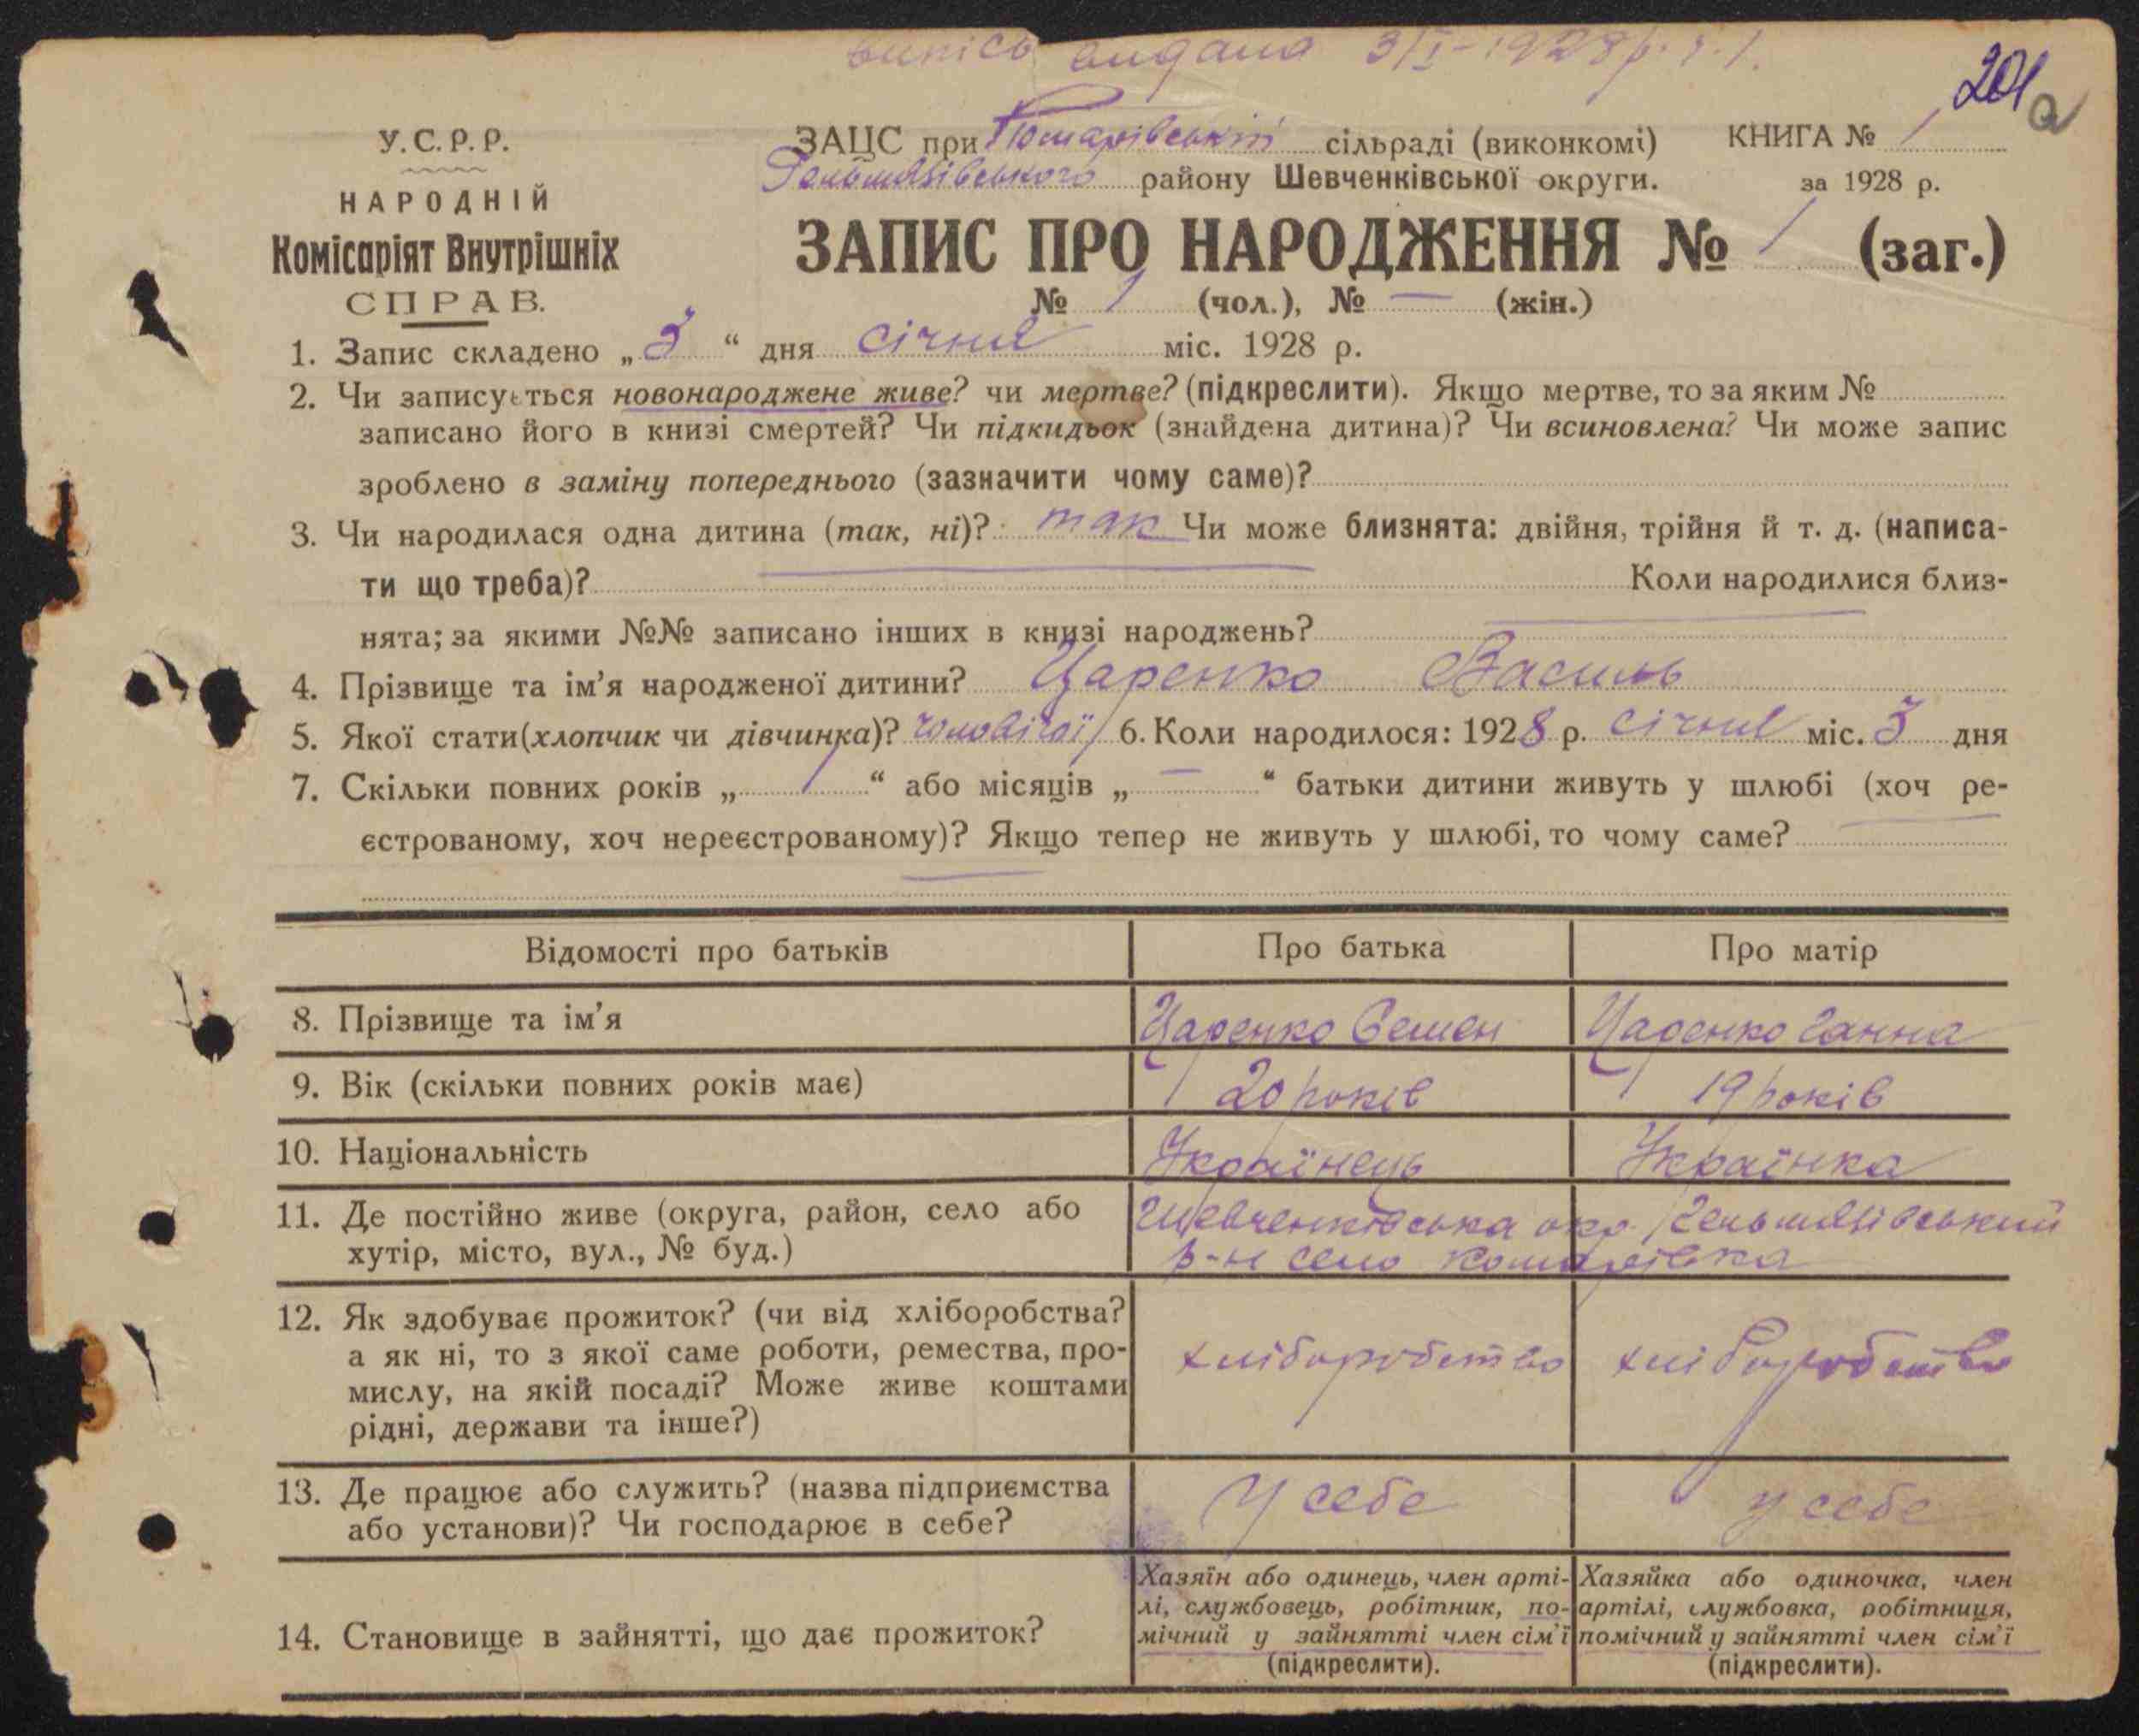 випісь видана 3/I-1928 р.
201 а
У.С.Р.Р.
НАРОДНІЙ
Комісаріят Внутрішніх
СПРАВ.
ЗАЦС при Комарівській сільраді (виконкомі) КНИГА № 1
Гельмязівського району Шевченківської округи. за 1928 р.
ЗАПИС ПРО НАРОДЖЕННЯ № 1 (заг.)
№ 1 (чол.), № — (жін.)
1. Запис складено „ 3 “ дня січня міс. 1928 р.
2. Чи записується новонароджене живе? чи мертве? (підкреслити). Якщо мертве, то за яким №
записано його в книзі смертей? Чи підкидьок (знайдена дитина)? Чи всиновлена? Чи може запис
зроблено в заміну попереднього (зазначити чому саме)?
3. Чи народилася одна дитина (так, ні)? так Чи може близнята: двійня, трійня й т. д. (написа-
ти що треба)? Коли народилися близ-
нята; за якими №№ записано інших в книзі народжень?
4. Прізвище та ім’я народженої дитини? Царенко Василь
5. Якої стати (хлопчик чи дівчинка)? чоловічої 6. Коли народилося: 1928 р. січня міс. 3 дня
7. Скільки повних років „ 1 “ або місяців „ — “ батьки дитини живуть у шлюбі (хоч ре-
єстрованому, хоч нереєстрованому)? Якщо тепер не живуть у шлюбі, то чому саме?
Відомості про батьків Про батька Про матір
8. Прізвище та ім’я Царенко Семен Царенко Ганна
9. Вік (скільки повних років має) 20 років 19 років
10. Національність Українець Українка
11. Де постійно живе (округа, район, село або Шевченківська окр. Гельмязівський
хутір, місто, вул., № буд.) р-н село Комарівка
12. Як здобуває прожиток? (чи від хліборобства?
а як ні, то з якої саме роботи, ремества, про- хліборобство хліборобство
мислу, на якій посаді? Може живе коштами
рідні, держави та інше?)
13. Де працює або служить? (назва підприємства У себе у себе
або установи)? Чи господарює в себе?
14. Становище в зайнятті, що дає прожиток?
Хазяїн або одинець, член арті-
лі, службовець, робітник, по-
мічний у зайнятті член сім’ї
(підкреслити).
Хазяйка або одиночка, член
артілі, службовка, робітниця,
помічний у зайнятті член сім’ї
(підкреслити).